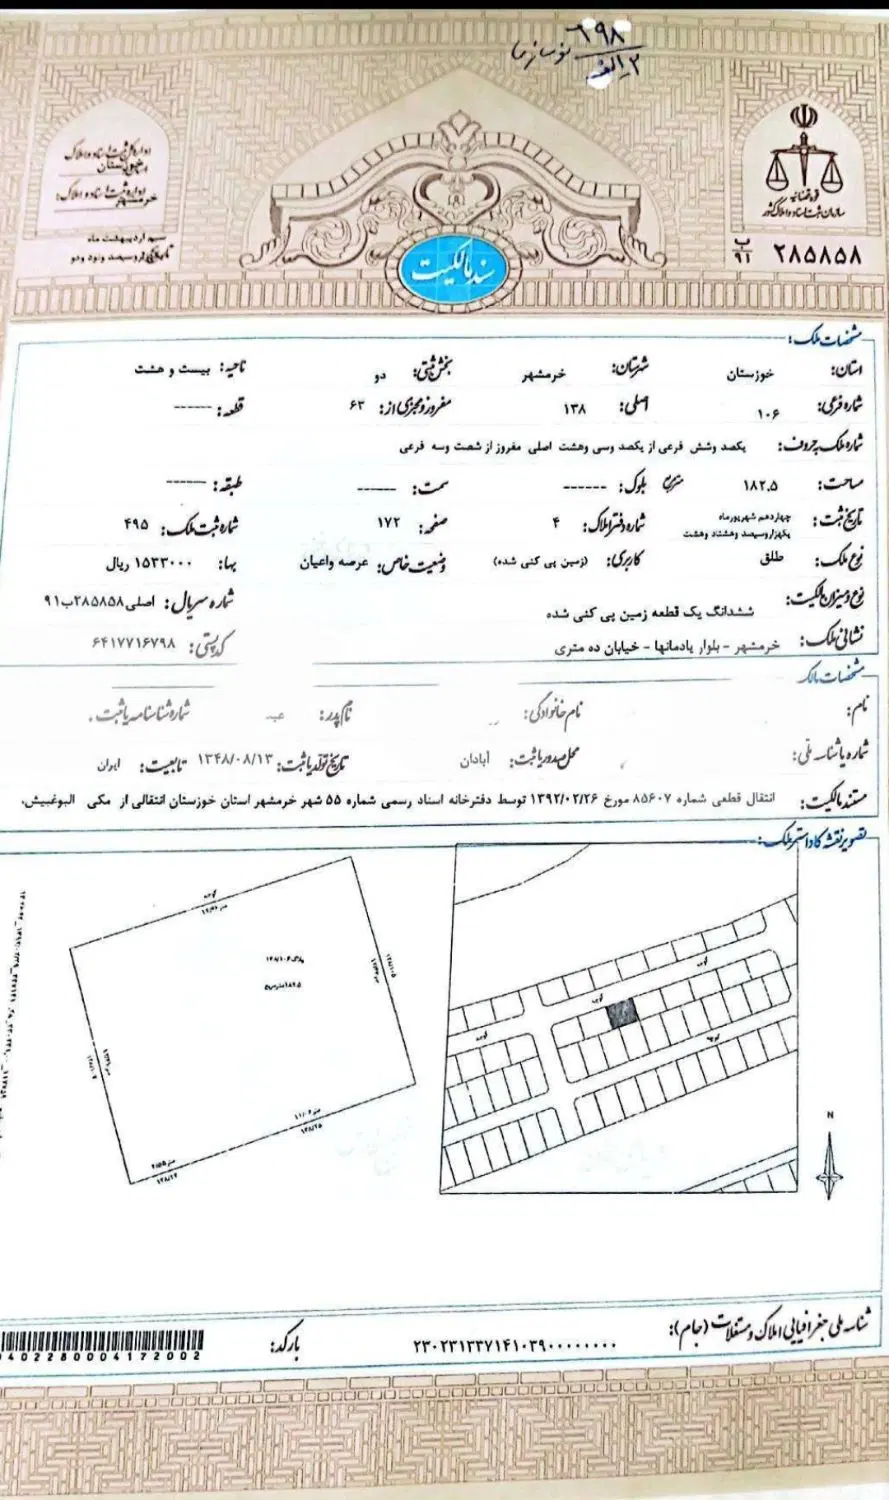 ۶۹۸
۲ الف
نوسازها
قوه قضائیه
سازمان ثبت اسناد و املاک کشور
۲۸۵۸۵۸ ب ۹۱
اداره کل ثبت اسناد و املاک
خوزستان
اداره ثبت اسناد و املاک:
خرمشهر
سی‌ام اردیبهشت ماه
سند مالکیت
مشخصات ملک:
استان: خوزستان شهرستان: خرمشهر بخش ثبتی: دو ناحیه: بیست و هشت
شماره فرعی: ۱۰۶ اصلی: ۱۳۸ مفروز و مجزی از: ۶۳ قطعه: ------
شماره ملک به حروف: یکصد وشش فرعی از یکصد وسی وهشت اصلی مفروز از شصت وسه فرعی
مساحت: ۱۸۲.۵ مترمربع بلوک: ------ سمت: ------ طبقه: ------
تاریخ ثبت: چهاردهم شهریورماه یکهزاروسیصد وهشتاد وهشت شماره دفتر املاک: ۴ صفحه: ۱۷۲ شماره ثبت ملک: ۴۹۵
نوع ملک: طلق کاربری: (زمین پی کنی شده) وضعیت خاص: عرصه واعیان بها: ۱۵۳۳۰۰۰ ریال
نوع و میزان مالکیت: ششدانگ یک قطعه زمین پی کنی شده شماره سریال: اصلی۲۸۵۸۵۸ب۹۱
نشانی ملک: خرمشهر - بلوار یادمانها - خیابان ده متری کدپستی: ۶۴۱۷۷۱۶۷۹۸
مشخصات مالک
نام: نام خانوادگی: نام پدر: عبد شماره شناسنامه یا ثبت:
شماره یا شناسه ملی: محل صدور یا ثبت: آبادان تاریخ تولد یا ثبت: ۱۳۴۸/۰۸/۱۳ تابعیت: ایران
مستند مالکیت: انتقال قطعی شماره ۸۵۶۰۷ مورخ ۱۳۹۲/۰۲/۲۶ توسط دفترخانه اسناد رسمی شماره ۵۵ شهر خرمشهر استان خوزستان انتقالی از مکی البوغبیش.
تصویر نقشه کاداستر ملک:
کوچه
پلاک ۱۳۸/۱۰۶
۱۸۲.۵ مترمربع
کوچه
کوچه
کوچه
کوچه
N
شناسه ملی جغرافیایی املاک و مستغلات (جام): ۲۳۰۲۳۱۳۳۷۱۴۱۰۳۹۰۰۰۰۰۰۰۰۰
بارکد:
402280004172002